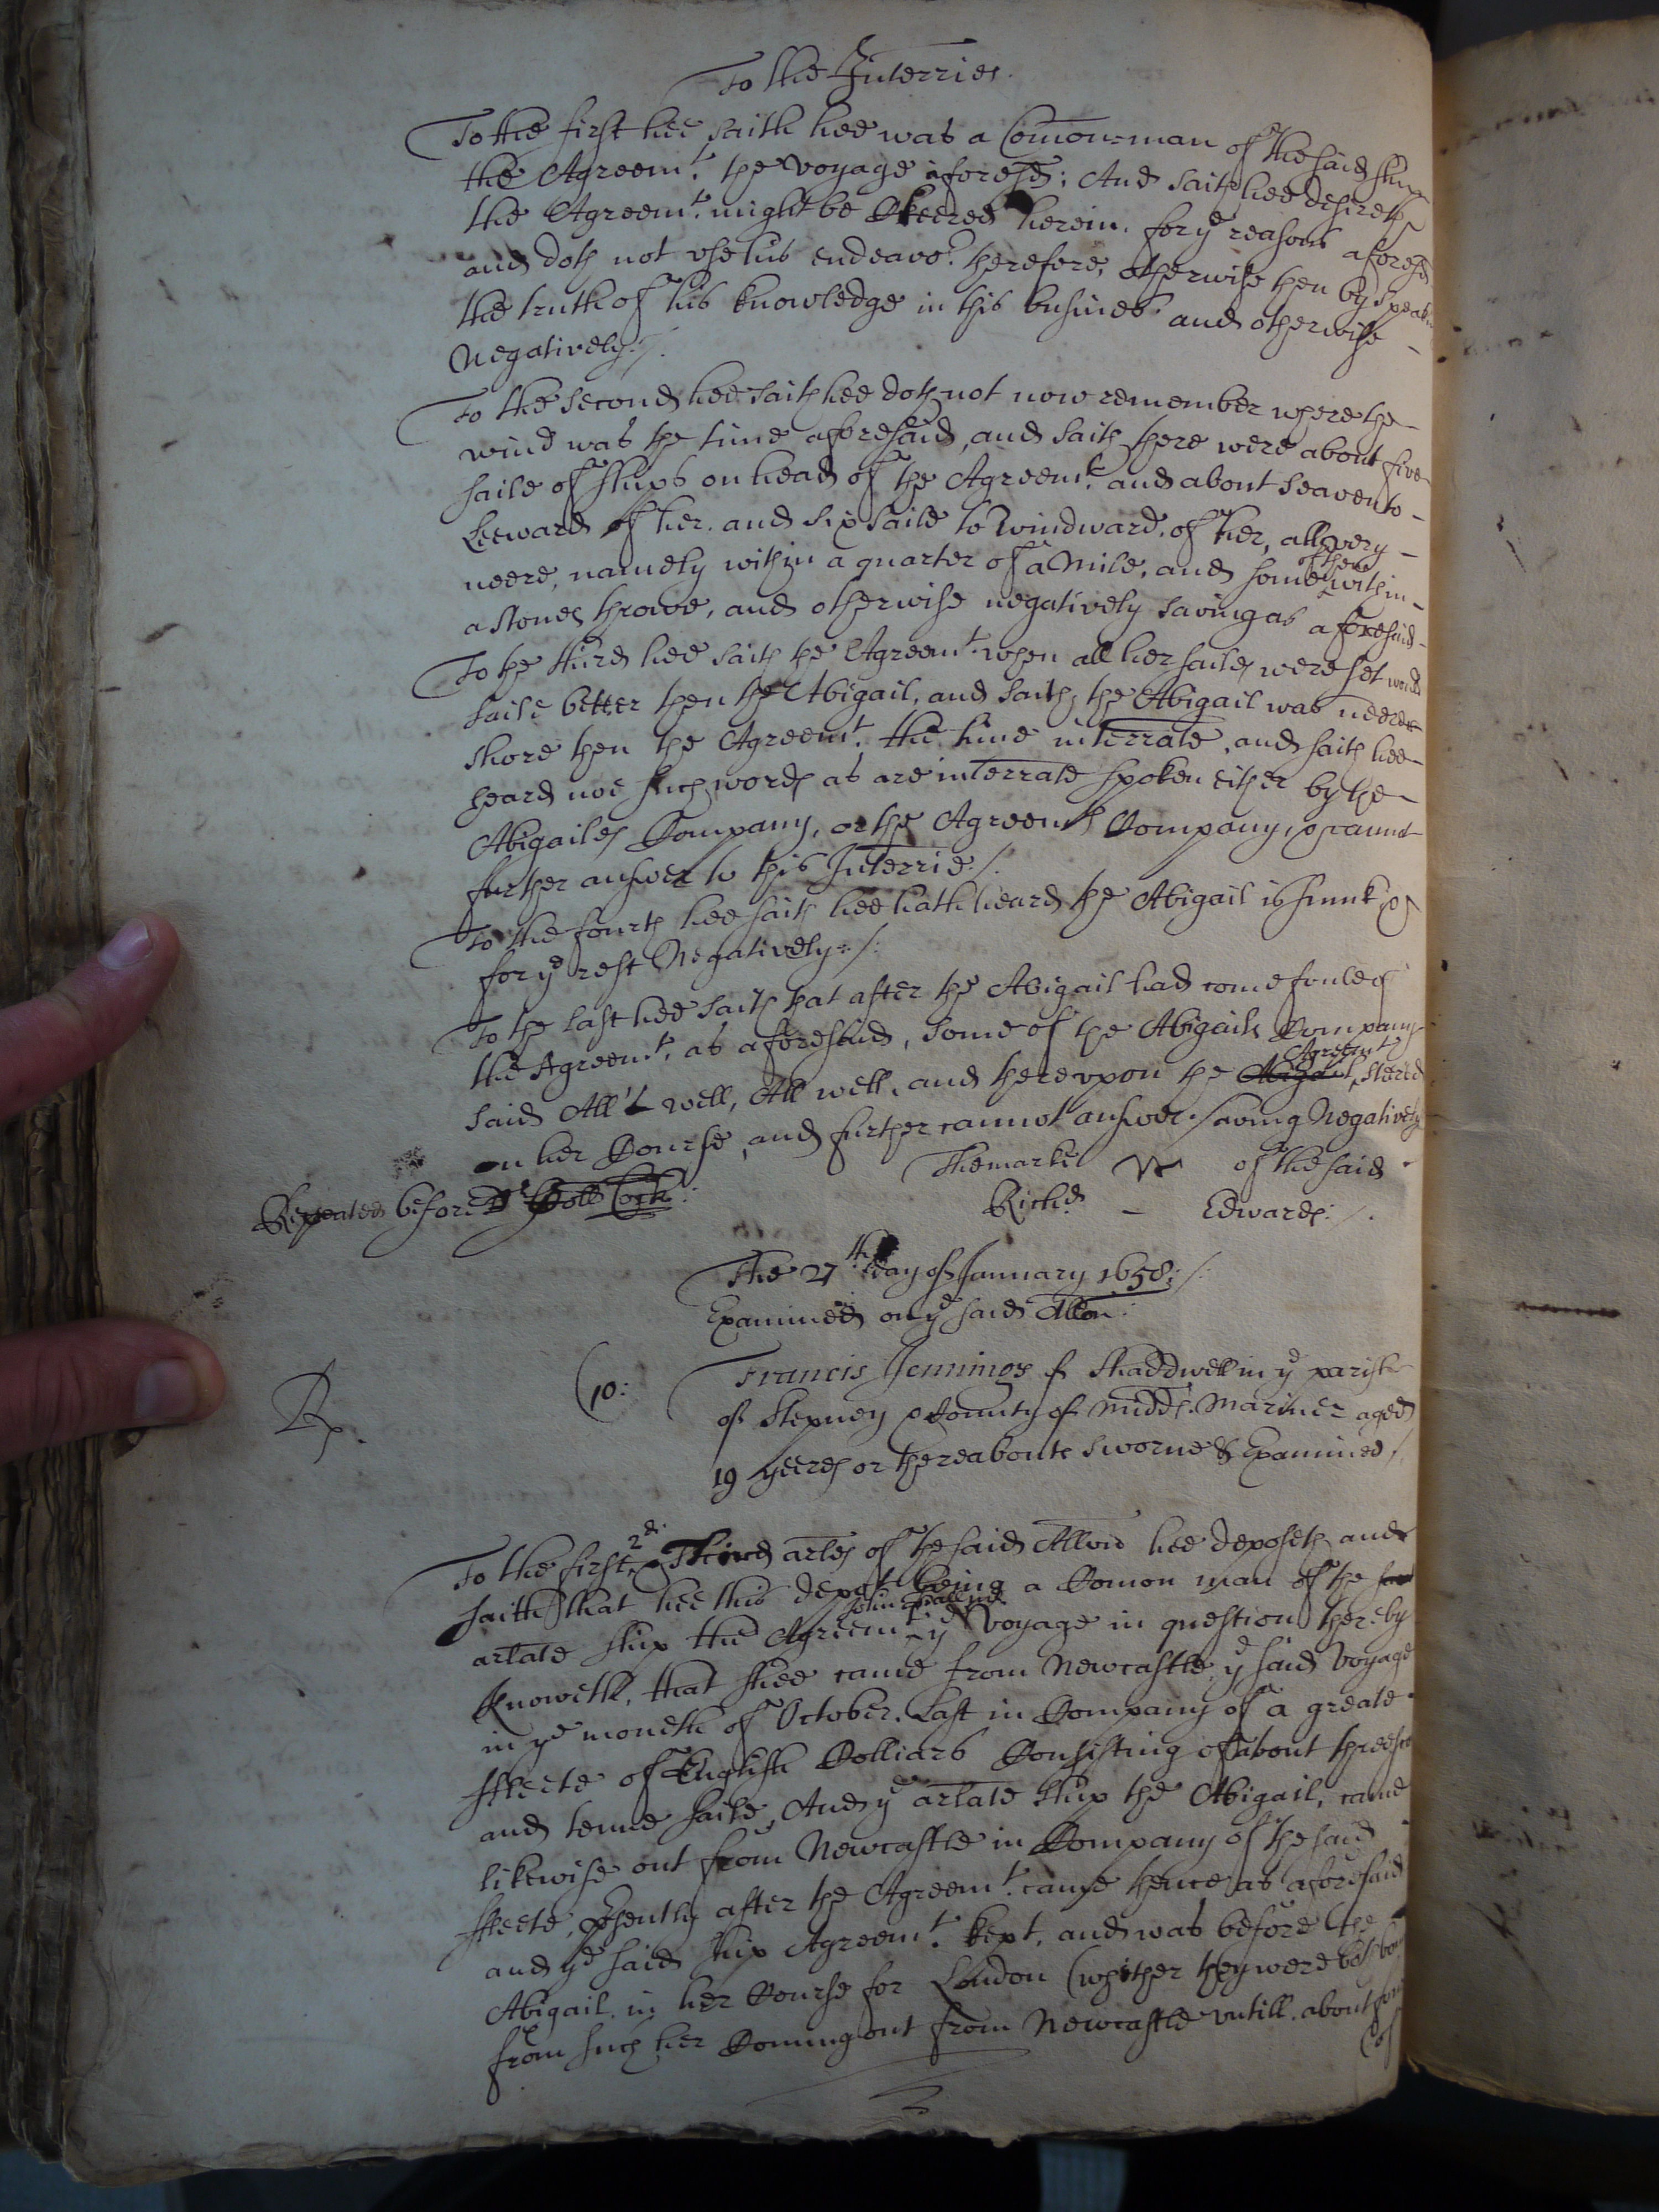 To the Interries.
To the first hee saith hee was a Comon=man of the said shipp
the Agreemt. the voyage aforesd; And saith hee desireth
the Agreemt. might be Cleered herein. for ye reasons aforesd
and doth not use his endeavor. therefore, otherwise then by speaking
the truth of his knowledge in this busines. and otherwise -
Negatively:/.
To the second hee saith hee doth not now remember where the -
wind was the time aforesaid, and saith there were about five -
saile of shipps on head of the Agreemt. and about seaven to -
Leeward of her. and six saile to Windward of her, all very -
neere, namely within a quarter of a Mile, and some of them within -
a stones throwe, and otherwise negatively saving as aforesaid -
To the third hee saith the Agreemt. when all her sailes were set would
saile better then the Abigail, and saith the Abigail was neerer
shore then the Agreemt. the time interrate, and saith hee -
heard noe such words as are interrate spoken either by the -
Abigailes Company, or the Agreemts Company, & cannot
further answer to this Interrie./.
To the fourth hee saith hee hath heard the Abigail is sunk &
for ye rest Negatively:/:
To the last hee saith that after the Abigail had come foule of
the Agreemt. as aforesaid, some of the Abigails Company
said All's well, All well, and thereupon the Abigail Agreemt stered
on her Course, and further cannot answer. saving Negatively
The marke of the said
Repeated before Dr
Richd. - Edwards:/.
The 27th day of January 1658:/:
Examined on ye said Allon:
Rp.
(10:
Francis Jennings of Shaddwell in ye parish
of Stepney & County of Midds. Mariner aged
19 yeeres or thereabouts sworne & Examined/.
To the first, 2d. & Third arles of the said Allon hee deposeth and
saith that hee this depot being a Comon man of the
arlate shipp the Agreemt. ye Voyage in question thereby
knoweth, that shee came from Newcastle ye said Voyage
in ye moneth of October. Last in Company of a greate
ffleete of English Colliars Consisting of about threescore
and tenne saile, And ye arlate shipp the Abigail, came
likewise out from Newcastle in Company of the said
ffleete, presently after the Agreemt. came thence as aforesaid
and ye said shipp Agreemt. kept, and was before the
Abigail in her Course for London (whither they were both bound
from such her Coming out from Newcastle untill. about
(of